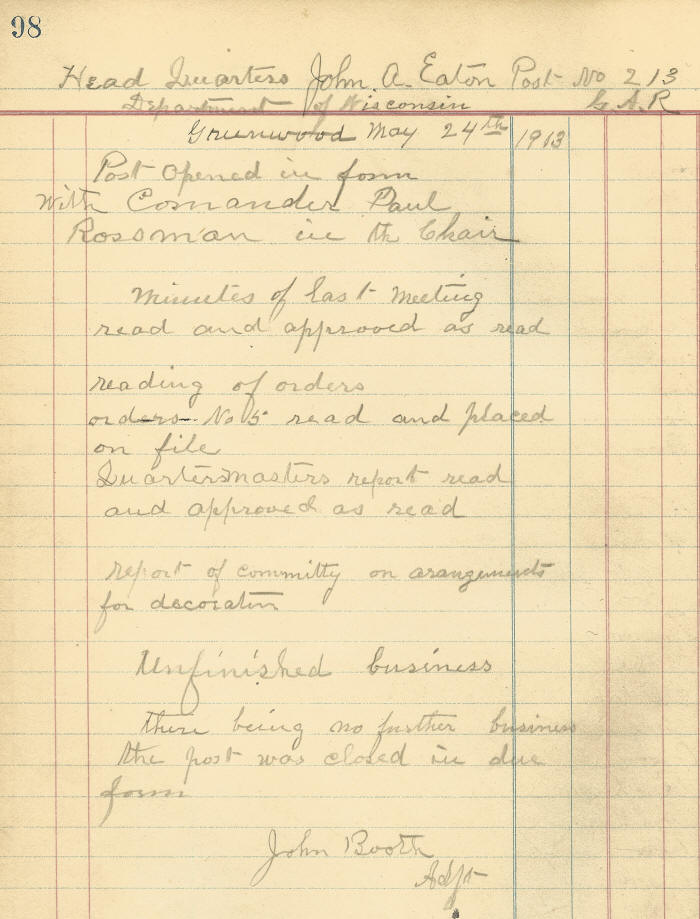 98
Head Quarters John A. Eaton Post No 213
Department of Wisconsin G.A.R
Greenwood May 24th 1913
Post Opened in form
with Comander Paul
Rossman in th Chair
Minutes of last Meeting
read and approved as read
reading of orders
orders No 5 read and placed
on file
Quartersmasters report read
and approved as read
report of committy on arangements
for decoration
Unfinished business
there being no further business
the post was closed in due
form
John Booth
Adjt